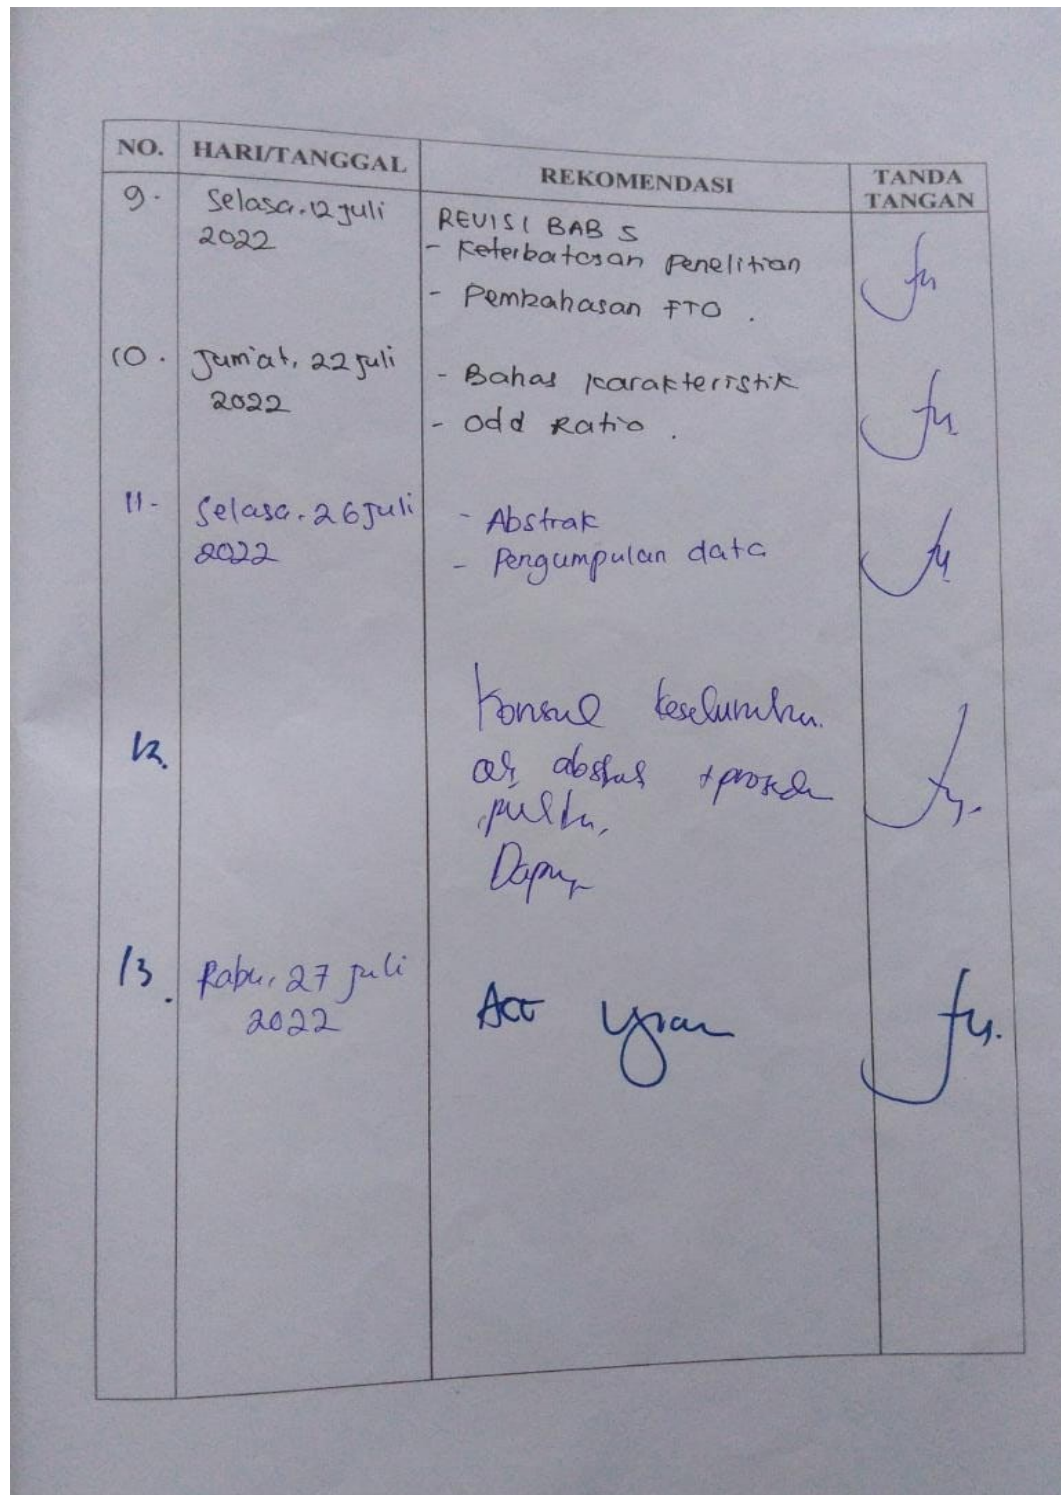 NO. HARI/TANGGAL REKOMENDASI TANDA TANGAN
9. Selasa, 12 Juli 2022
REVISI BAB 5
- Keterbatasan Penelitian
- Pembahasan FTO .
10. Jum'at, 22 Juli 2022
- Bahas karakteristik
- Odd Ratio .
11. Selasa, 26 Juli 2022
- Abstrak
- Pengumpulan data
12.
Konsul
13. Rabu, 27 Juli 2022
Acc